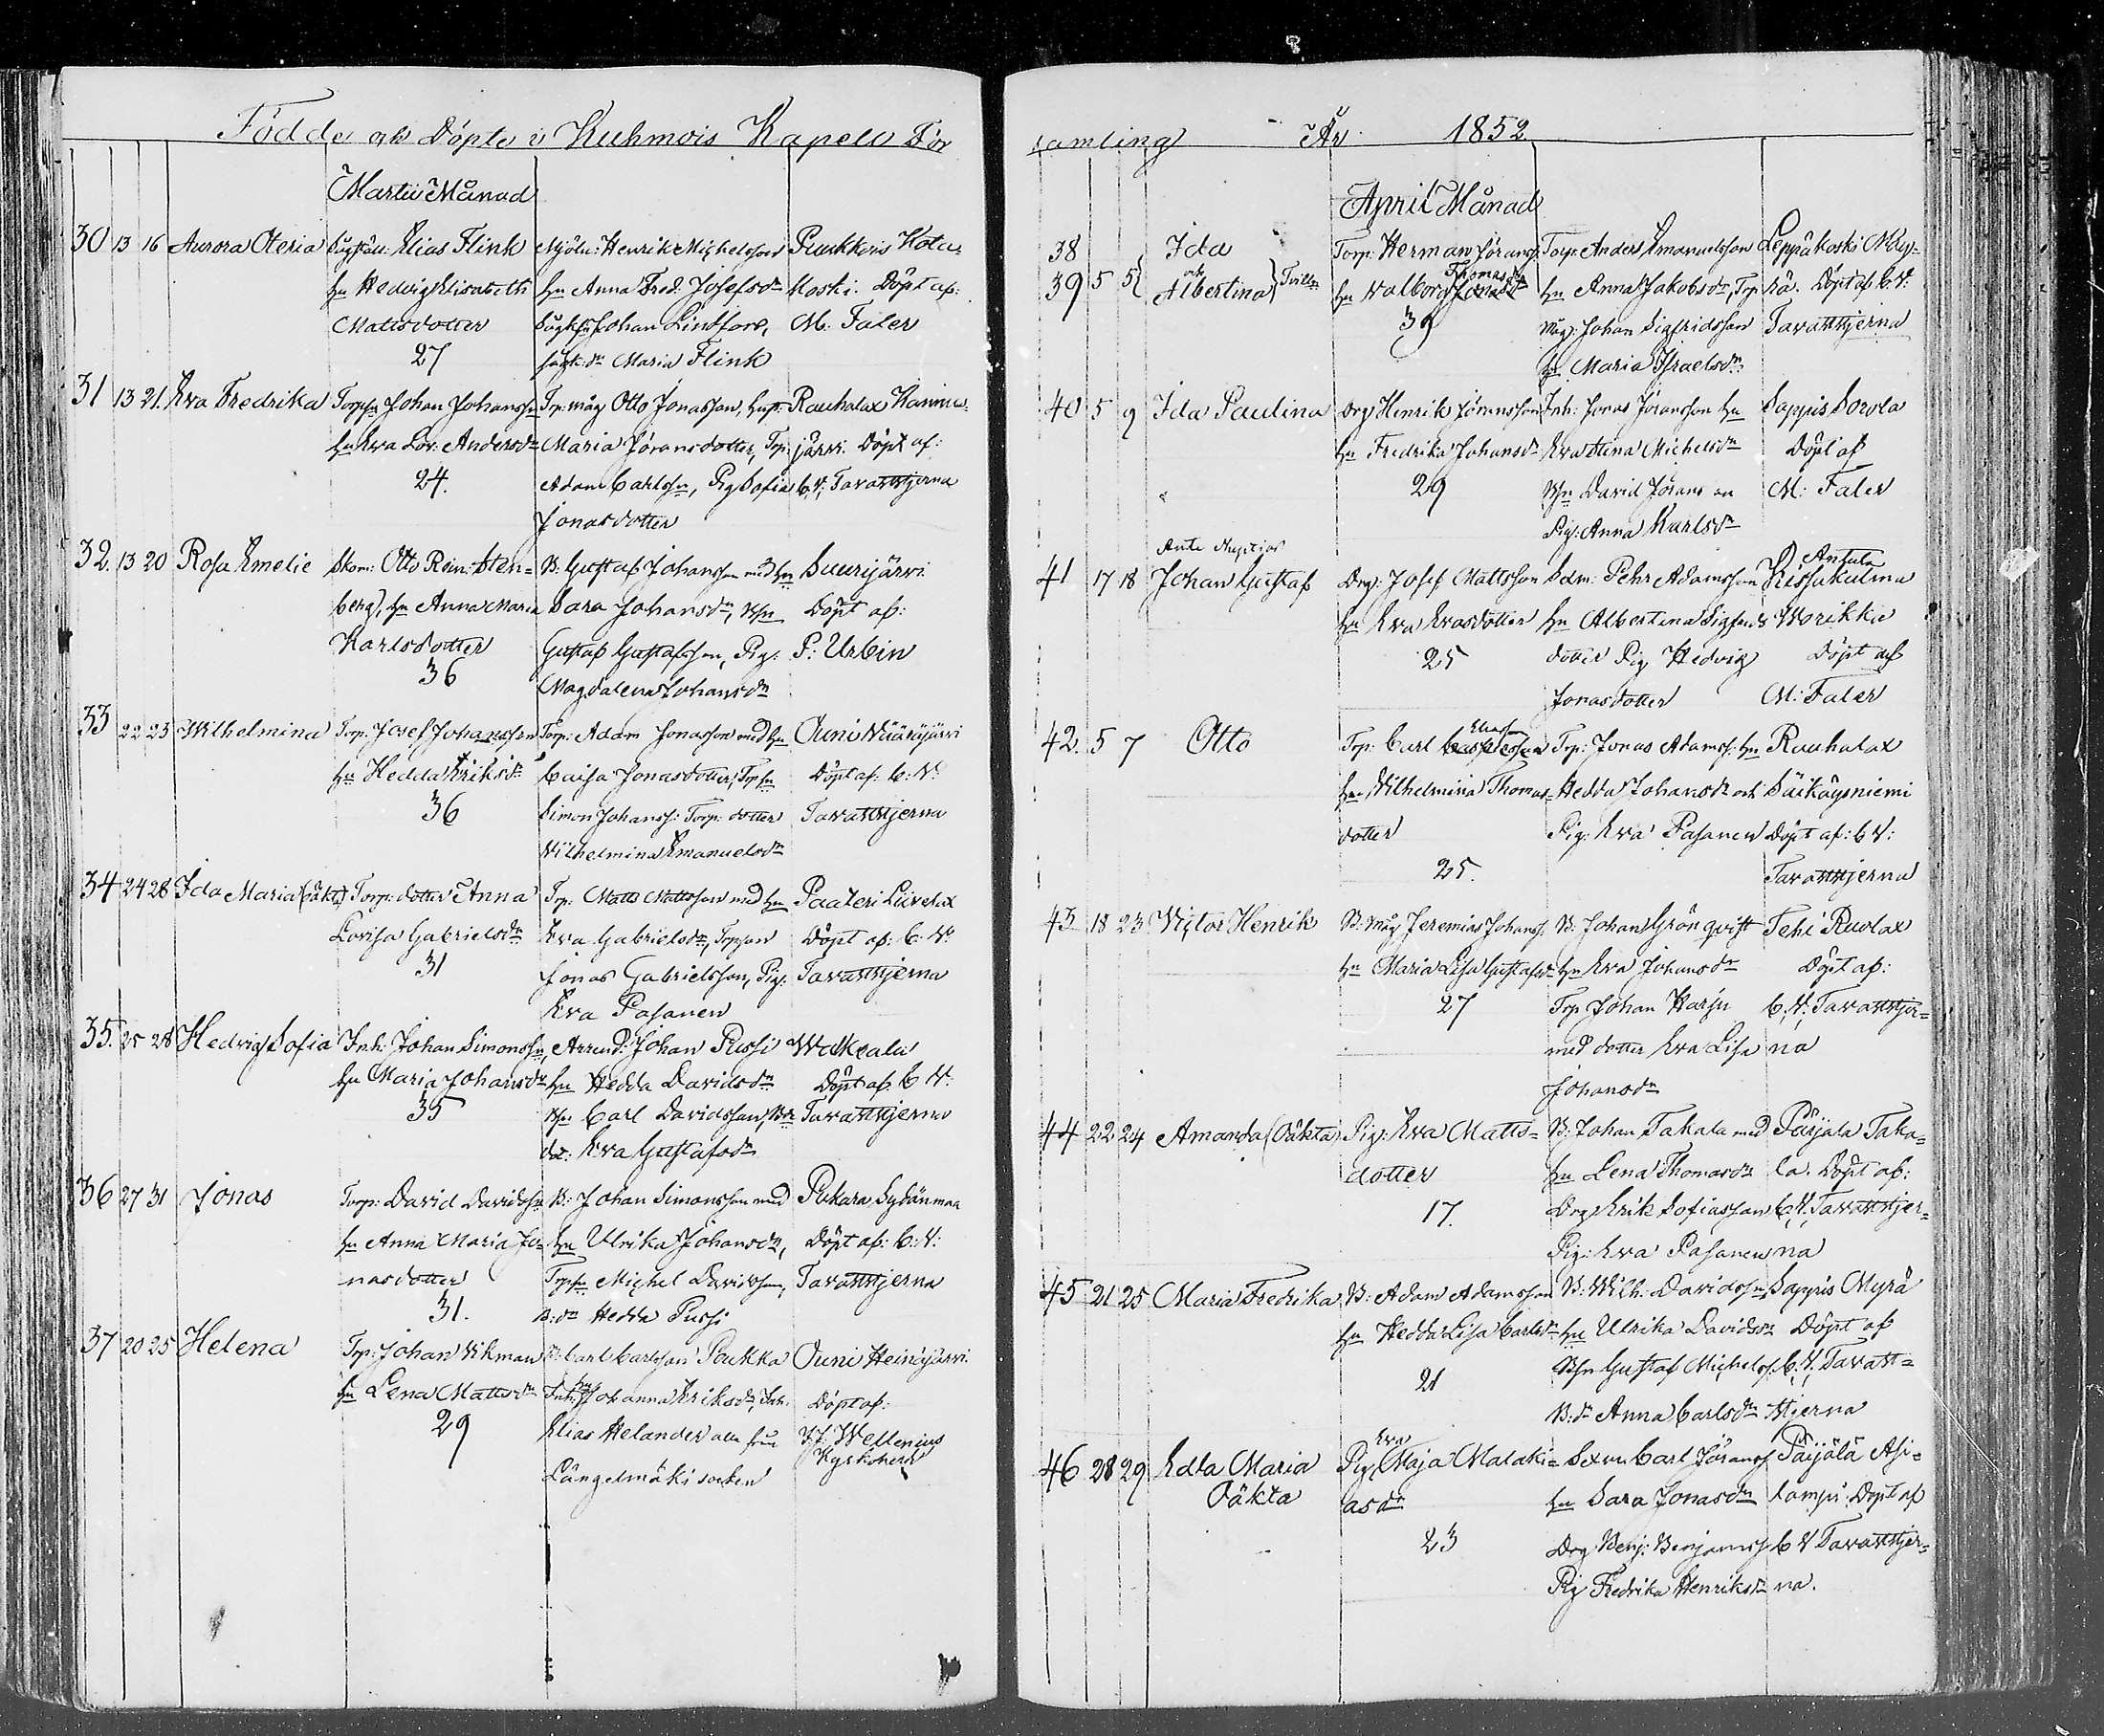 Födde och Döpte i Kuhmois Kapels För
Martii Månad
30 13 16 Aurora Oteria
Elias Flink
hu Hedvig Elisabeth
Mattsdotter
27
Mjöln: Henrik Michelsson
hu Anna Fred: Josefsdr
Johan Lindfors,
Maria Flink
Puukkois Kota-
koski. Döpt af:
M. Faler
31 13 21. Eva Fredrika
Johan Johanss
hu Eva Lov: Andersdr
24.
Torp: måg Otto Jonasson, hust:
Maria Göransdotter, Torp:
Adam Carlssn, Pig Sofia
Jonasdotter
Rauhalax
järvi. Döpt af:
C. V. Tavaststjerna
32. 13 20 Rosa Emelie
Skom: Otto Rein: Sten=
berg, hu Anna Maria
Karlsdotter
36
B: Gustaf Johansson med hu
Sara Johansdr,
Gustaf Gustafsson, Pig:
Magdalena Johansdr
Suurijärvi
Döpt af:
P: Urbin
33 22 23 Wilhelmina
Torp. Josef Johansson
hu Hedda Eriksdr
36
Torp: Adam Jonasson med hu
Caisa Jonasdotter,
Simon Johanss: Torp: dotter
Wilhelmina Emanuelsdr
Ouni
Döpt af: C: V:
Tavaststjerna
34 24 28 Ida Maria (oäkta)
Torp: dotter Anna
Lovisa Gabrielsdr
31
Torp: Matts Mattsson med hu
Eva Gabrielsdr,
Jonas Gabrielsson, Pig:
Eva Pasanen
Paateri
Döpt af: C: V:
Tavaststjerna
35. 25 28 Hedvig Sofia
Inh: Johan Simonssn,
hu Maria Johansdr
35
Arrend: Johan Pussi
hu Hedda Davidsdr
Carl Davidsson,
Eva Gustafsdr
Döpt af C V:
Tavaststjerna
36 27 31 Jonas
Torp: David Davidssn
hu Anna Maria Jo=
nasdotter
31.
B: Johan Simonsson med
hu Ulrika Johansdr,
Michel Davidson,
B: dr Hedda Pussi
Pukara Sydänmaa
Döpt af: C: V:
Tavaststjerna
37 20 25 Helena
Torp: Johan Vikman
hu Lena Mattsdr
29
Carl Carlsson Poukka
Johanna Eriksdr, Inh:
Elias Helander
Längelmäki socken
Ouni Heinijärvi
Döpt af:
Wellenius
Kyrkoherde
samling År 1852
April Månad
38
39 5 5
Ida
och
Albertina Tvill
Torp: Herman Görans
Thomasdr
hu Valborg
39
Torp: Anders Emanuelsson
hu Anna Jakobsdr, Torp
måg: Johan Sigfridsson
hu Maria Israelsdr
Leppäkoski
Döpt af C. V:
Tavaststjerna
40 5 9 Ida Paulina
Drg Henrik Göransson
hu Fredrika Johansdr
29
Inh: Jonas Göransson hu
Eva Stina Michelsdr
David
Pig: Anna Karlsdr
Sappis Sorola
Döpt af
M: Faler
Ante Nuptias
41 17 18 Johan Gustaf
Drg: Josef Mattsson
hu Eva Evasdotter
25
Sdm: Pehr Adamsson
hu Albertina Sigfrids
dotter Pig Hedvig
Jonasdotter
Anttula
Kissakulma
Döpt af
M: Faler
42. 5 7 Otto
Torp: Carl
hu Wilhelmina Thomas=
dotter
25.
Torp: Jonas Adamss: hu
Hedda Johansdr och
Pig: Eva Pasanen
Rauhalax
Säikäysniemi
Döpt af: C V:
Tavaststjerna
43 18 23 Victor Henrik
B: måg Jeremias Johanss:
hu Maria Lisa Gustafsdr
27
B: Johan Grönqvist
hu Eva Johansdr
Torp Johan Harju
med dotter Eva Lisa
Johansdr
Tehi Ruolax
Döpt af:
C. V. Tavaststjer=
na
44 22 24 Amanda (Oäkta)
Pig: Eva Matts=
dotter
17.
B: Johan Takala med
hu Lena Thomasdr
Drg Erik Sofiasson
Pig: Eva Pasanen
Päijälä Taka=
la. Döpt af:
C. V. Tavaststjer=
na
45 21 25 Maria Fredrika
B: Adam Adamsson
hu Hedda Lisa Carlsdr
21
B: Wilh: Davidssn
hu Ulrika Davidsdr
Gustaf Michelss
B: dr Anna Carlsdr
Sappis Myrä
Döpt af
C. V. Tavast=
stjerna
46 28 29 Edla Maria
Oäkta
Eva
Pig, Maja Malaki=
asdr
23
Carl Göranss
hu Sara Jonasdr
Drg Benj: Benjamss
Pig Fredrika Henriksdr
Päijälä Asi=
lampi. Döpt af
C V Tavaststjer=
na.